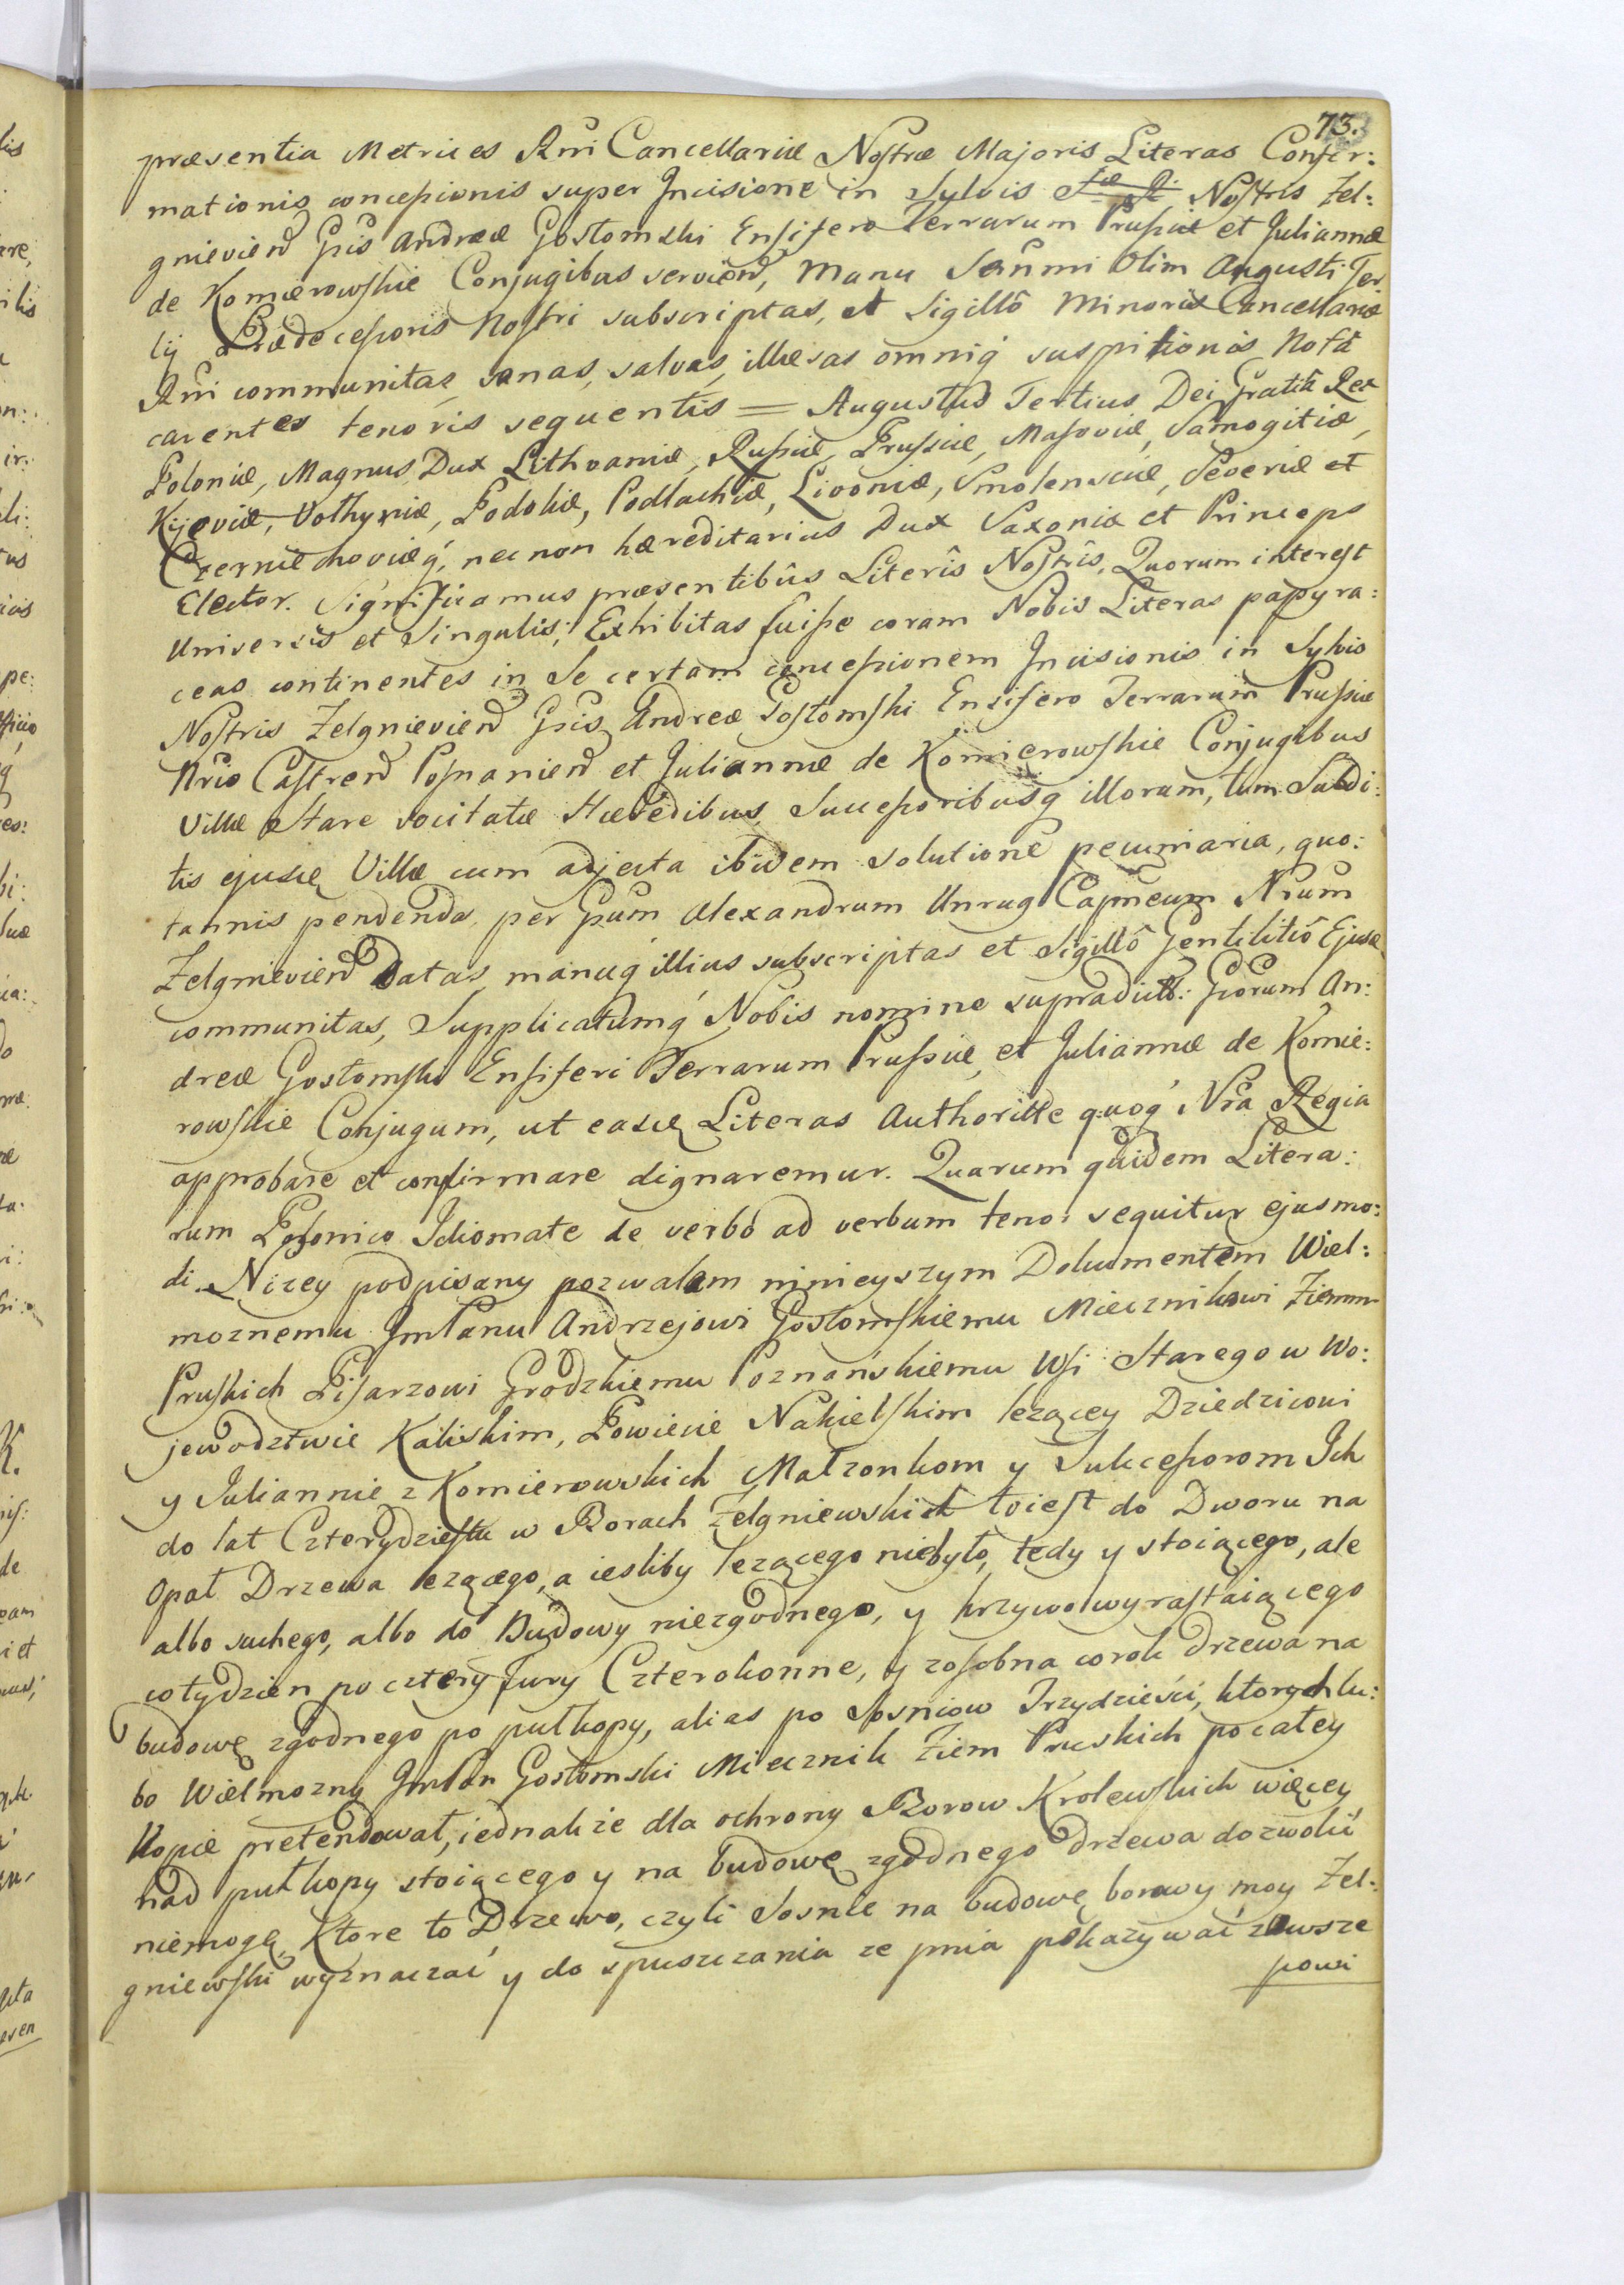 73.
præsentia Metrices Rni Cancellariæ Nostræ Majoris Literas Confir:
mationis concessionis super Incisione in Sylvis Nostris Zel:
gnievien Gsis Andreæ Gostomski Ensifero Terrarum Prussiæ et Juliannæ
de Komierowskie Conjugibus servien, Manu Sernmi Olim Augusti Ter
tij Prædecessoris Nostri subscriptas, et Sigillô Minoris Cancellariæ
Rni communitas, sanas, salvas, illæsas omniq́ suspitionis Notâ
carentes tenoris sequentis = Augustus Tertius Dei Gratiâ Rex
Poloniæ, Magnus Dux Lithvaniæ, Russiæ, Prussiæ, Masoviæ, Samogitiæ,
Kijoviæ, Volhyniæ, Podoliæ, Podlachiæ, Livoniæ, Smolensciæ, Severiæ et
Czerniechoviæq́, necnon hæreditarius Dux Saxoniæ et Princeps
Elector. Significamus præsentibûs Literîs Nostrîs, Quorum interest
Universis et Singulis; Exhibitas fuisse coram Nobis Literas papyra:
ceas continentes in Se certam concessionem Incisionis in Sylvis
Nostris Zelgnievien Gsis Andreæ Gostomski Ensifero Terrarum Prussiæ
Nrio Castren Posnanien et Juliannæ de Komierowskie Conjugibus
Villæ Stare vocitatæ Hæredibus, Successoribusq́ illorum, tum Subdi:
tis ejusdę Villæ cum adjecta ibidem solutione pecuniaria, quo:
tannis pendenda, per Gsum Alexandrum Unrug Capneum Nrum
Zelgnievien Datas, manuq́ illius subscriptas et Sigillô Gentilitiô Ejusdę
communitas, Supplicatumq́ Nobis nomine supradict: Gsorum An:
dreæ Gostomski Ensiferi Terrarum Prussiæ, et Juliannæ de Komie:
rowskie Conjugum, ut easdę Literas Authoritte quoq́ Nrâ Regia
approbare et confirmare dignaremur. Quarum quidem Litera:
rum Polonico Idiomate de verbo ad verbum tenor sequitur ejusmo:
di. Nizey podpisany pozwalam ninieyszym Dokumentem Wiel:
moznemu JmPanu Andrzejowi Gostomskiemu Miecznikowi Ziemm
Pruskich Pisarzowi Grodzkiemu Poznańskiemu Wsi Starego w Wo:
jewodztwie Kaliskim, Powiecie Nakielskim lezącey Dziedzicowi
y Juliannie z Komierowskich Małzonkom y Sukcessorom Ich
do lat Czterydziestu w Borach Zelgniewskich toiest do Dworu na
Opał Drzewa lezącego, a iesliby lezącego niebyło, tedy y stoiącego, ale
albo suchego, albo do Budowy niezgodnego, y krzywo wyrastaiącego
cotydzien po cztery fury Czterokonne, y zosobna corok drzewa na
budowę zgodnego po pułkopy, alias po Sosniow Trzydzieści, ktorych lu:
bo Wielmozny JmPan Gostomski Miecznik Ziem Pruskich po całey
Kopie pretendował, iednakze dla ochrony Borow Krolewskich więcey
nad pułkopy stoiącego y na budowę zgodnego drzewa dozwolić
niemogę, Ktore to Drzewo, czyli Sosnie na budowę borowy moy Zel:
gniewski wyznaczać y do spuszczania ze pnia pokazywać zawsze
powi